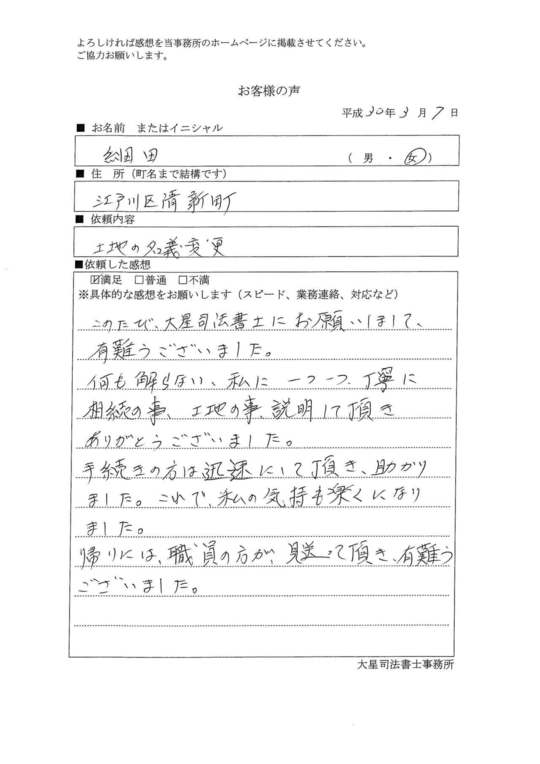 よろしければ感想を当事務所のホームページに掲載させてください。
ご協力お願いします。
お客様の声
平成30年3月7日
■ お名前 またはイニシャル
細田 (男・女)
■ 住 所（町名まで結構です）
江戸川区清新町
■ 依頼内容
土地の名義変更
■依頼した感想
☑満足 □普通 □不満
※具体的な感想をお願いします（スピード、業務連絡、対応など）
このたび、大星司法書士にお願いしまして、
有難うございました。
何も解らない、私に 一つ一つ、丁寧に
相続の事、土地の事、説明して頂き
ありがとうございました。
手続きの方は迅速にして頂き、助かり
ました。これで、私の気持も楽くになり
ました。
帰りには、職員の方が、見送って頂き、有難う
ございました。
大星司法書士事務所